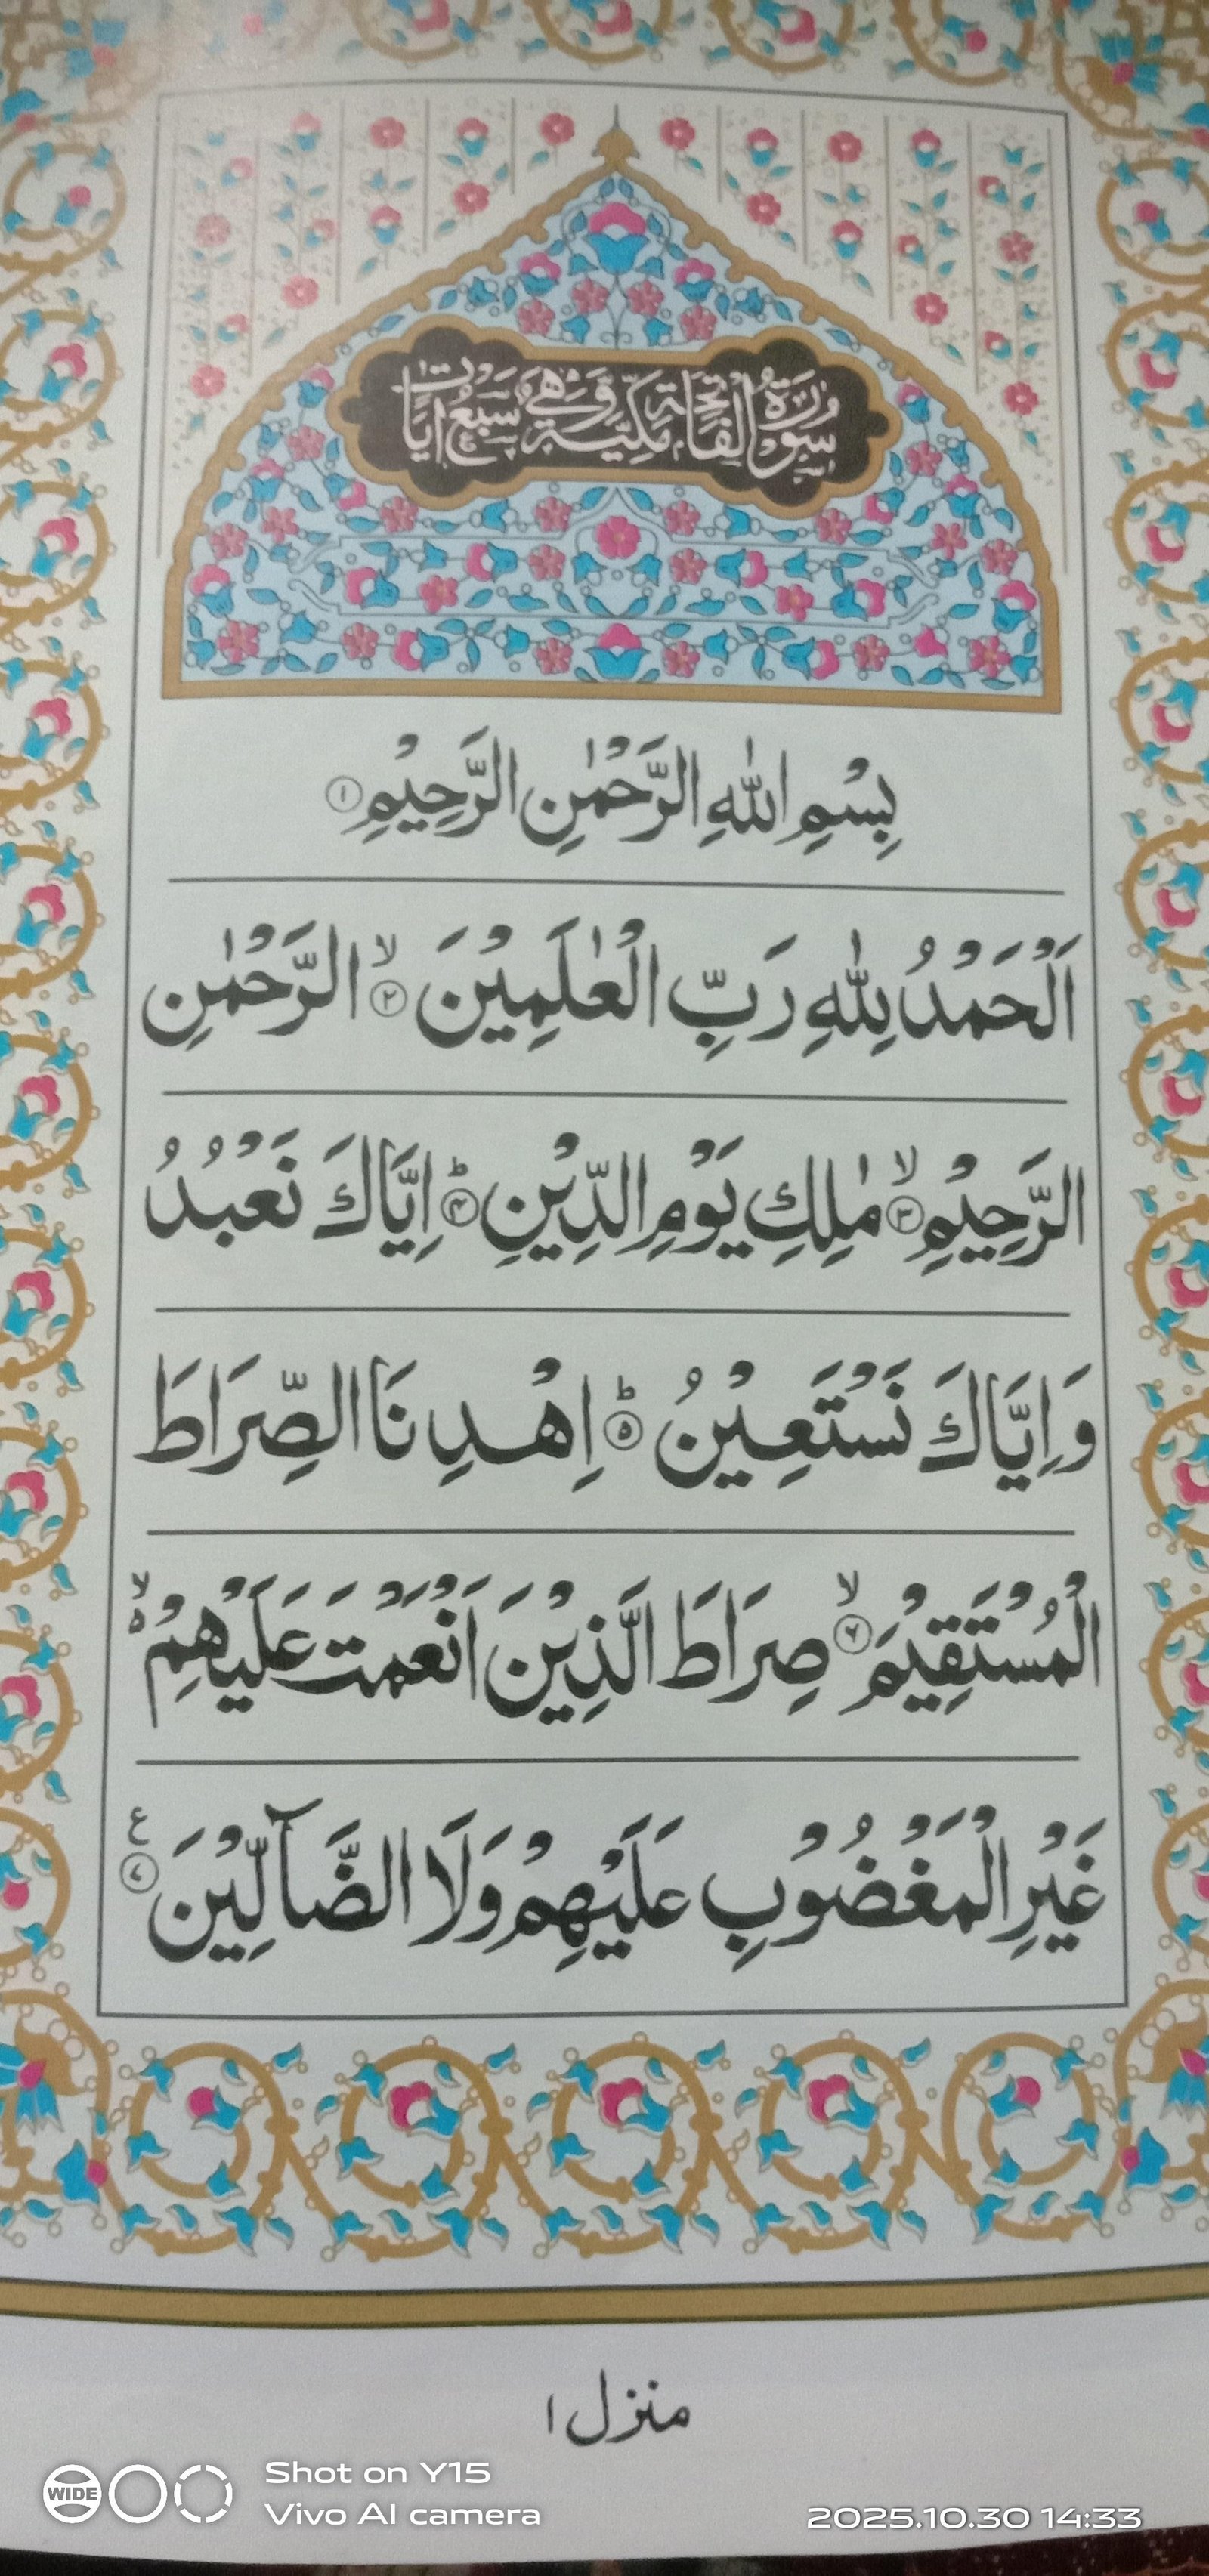 سُوْرَةُ الْفَاتِحَةِ مَكِّيَّةٌ وَّهِيَ سَبْعُ اٰيَاتٍ
بِسْمِ اللّٰهِ الرَّحْمٰنِ الرَّحِيْمِ ۝١
اَلْحَمْدُ لِلّٰهِ رَبِّ الْعٰلَمِيْنَ ۙ۝٢ الرَّحْمٰنِ
الرَّحِيْمِ ۙ۝٣ مٰلِكِ يَوْمِ الدِّيْنِ ؕ۝٤ اِيَّاكَ نَعْبُدُ
وَاِيَّاكَ نَسْتَعِيْنُ ؕ۝٥ اِهْدِنَا الصِّرَاطَ
الْمُسْتَقِيْمَ ۙ۝٦ صِرَاطَ الَّذِيْنَ اَنْعَمْتَ عَلَيْهِمْ ۙ۬ۥ
غَيْرِ الْمَغْضُوْبِ عَلَيْهِمْ وَلَا الضَّآلِّيْنَ ۝٧ ع
منزل ١
WIDE
Shot on Y15
Vivo AI camera
2025.10.30 14:33